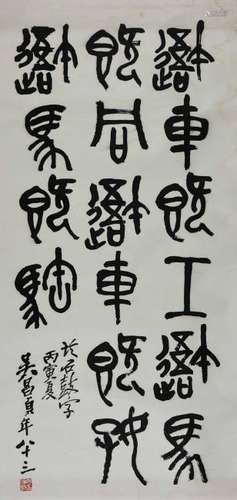 吾車既工吾馬
既同吾車既好
吾馬既騊
石鼓字
丙寅夏
吳昌碩年八十三